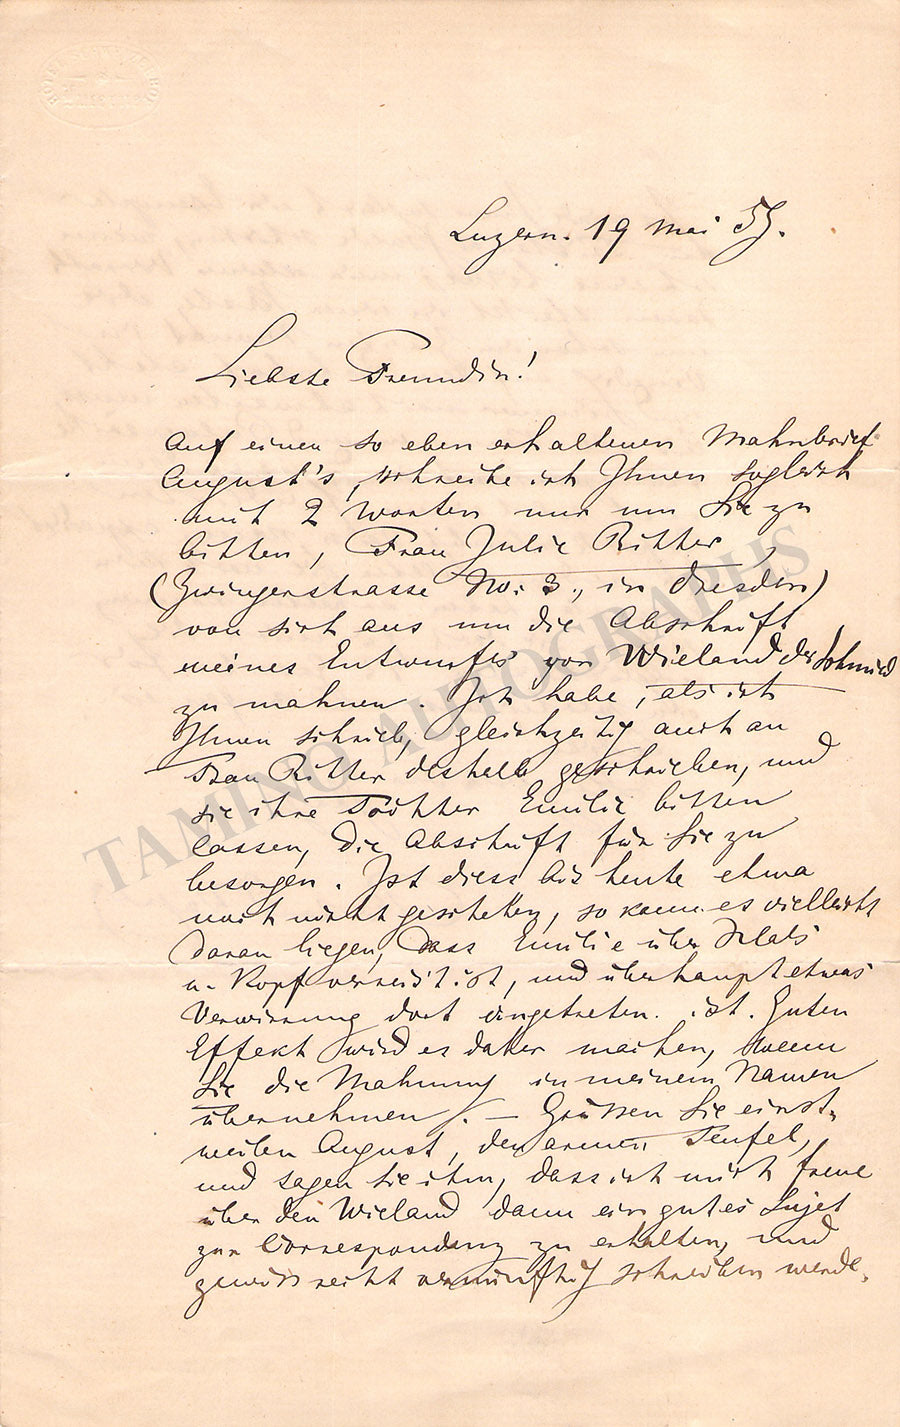 Luzern. 19 Mai 59.
Liebste Freundin!
Auf einen so eben erhaltenen Mahnbrief
August's, schreibe ich Ihnen sogleich
mit 2 Worten nur um Sie zu
bitten, Frau Julie Ritter,
(Zwingerstrasse No. 3., in Dresden)
von sich aus um die Abschrift
meines Entwurfes von Wieland der Schmied
zu mahnen. Ich habe, als ich
Ihnen schrieb, gleichzeitig auch an
Frau Ritter deshalb geschrieben, und
sie ihre Tochter Emilie bitten
lassen, die Abschrift für Sie zu
besorgen. Ist diess bis heute etwa
noch nicht geschehen, so kann es vielleicht
daran liegen, dass Emilie über Hals
u. Kopf verreist ist, und überhaupt etwas
Verwirrung dort eingetreten. ist. Guten
Effekt wird es daher machen, wenn
Sie die Mahnung in meinem Namen
übernehmen. — Grüssen Sie einst-
weilen August, den armen Teufel,
und sagen Sie ihm, dass ich mich freue
über den Wieland dann ein gutes Sujet
zur Correspondenz zu erhalten, und
gewiss recht vernünftig schreiben werde.
TAMINO AUTOGRAPHS